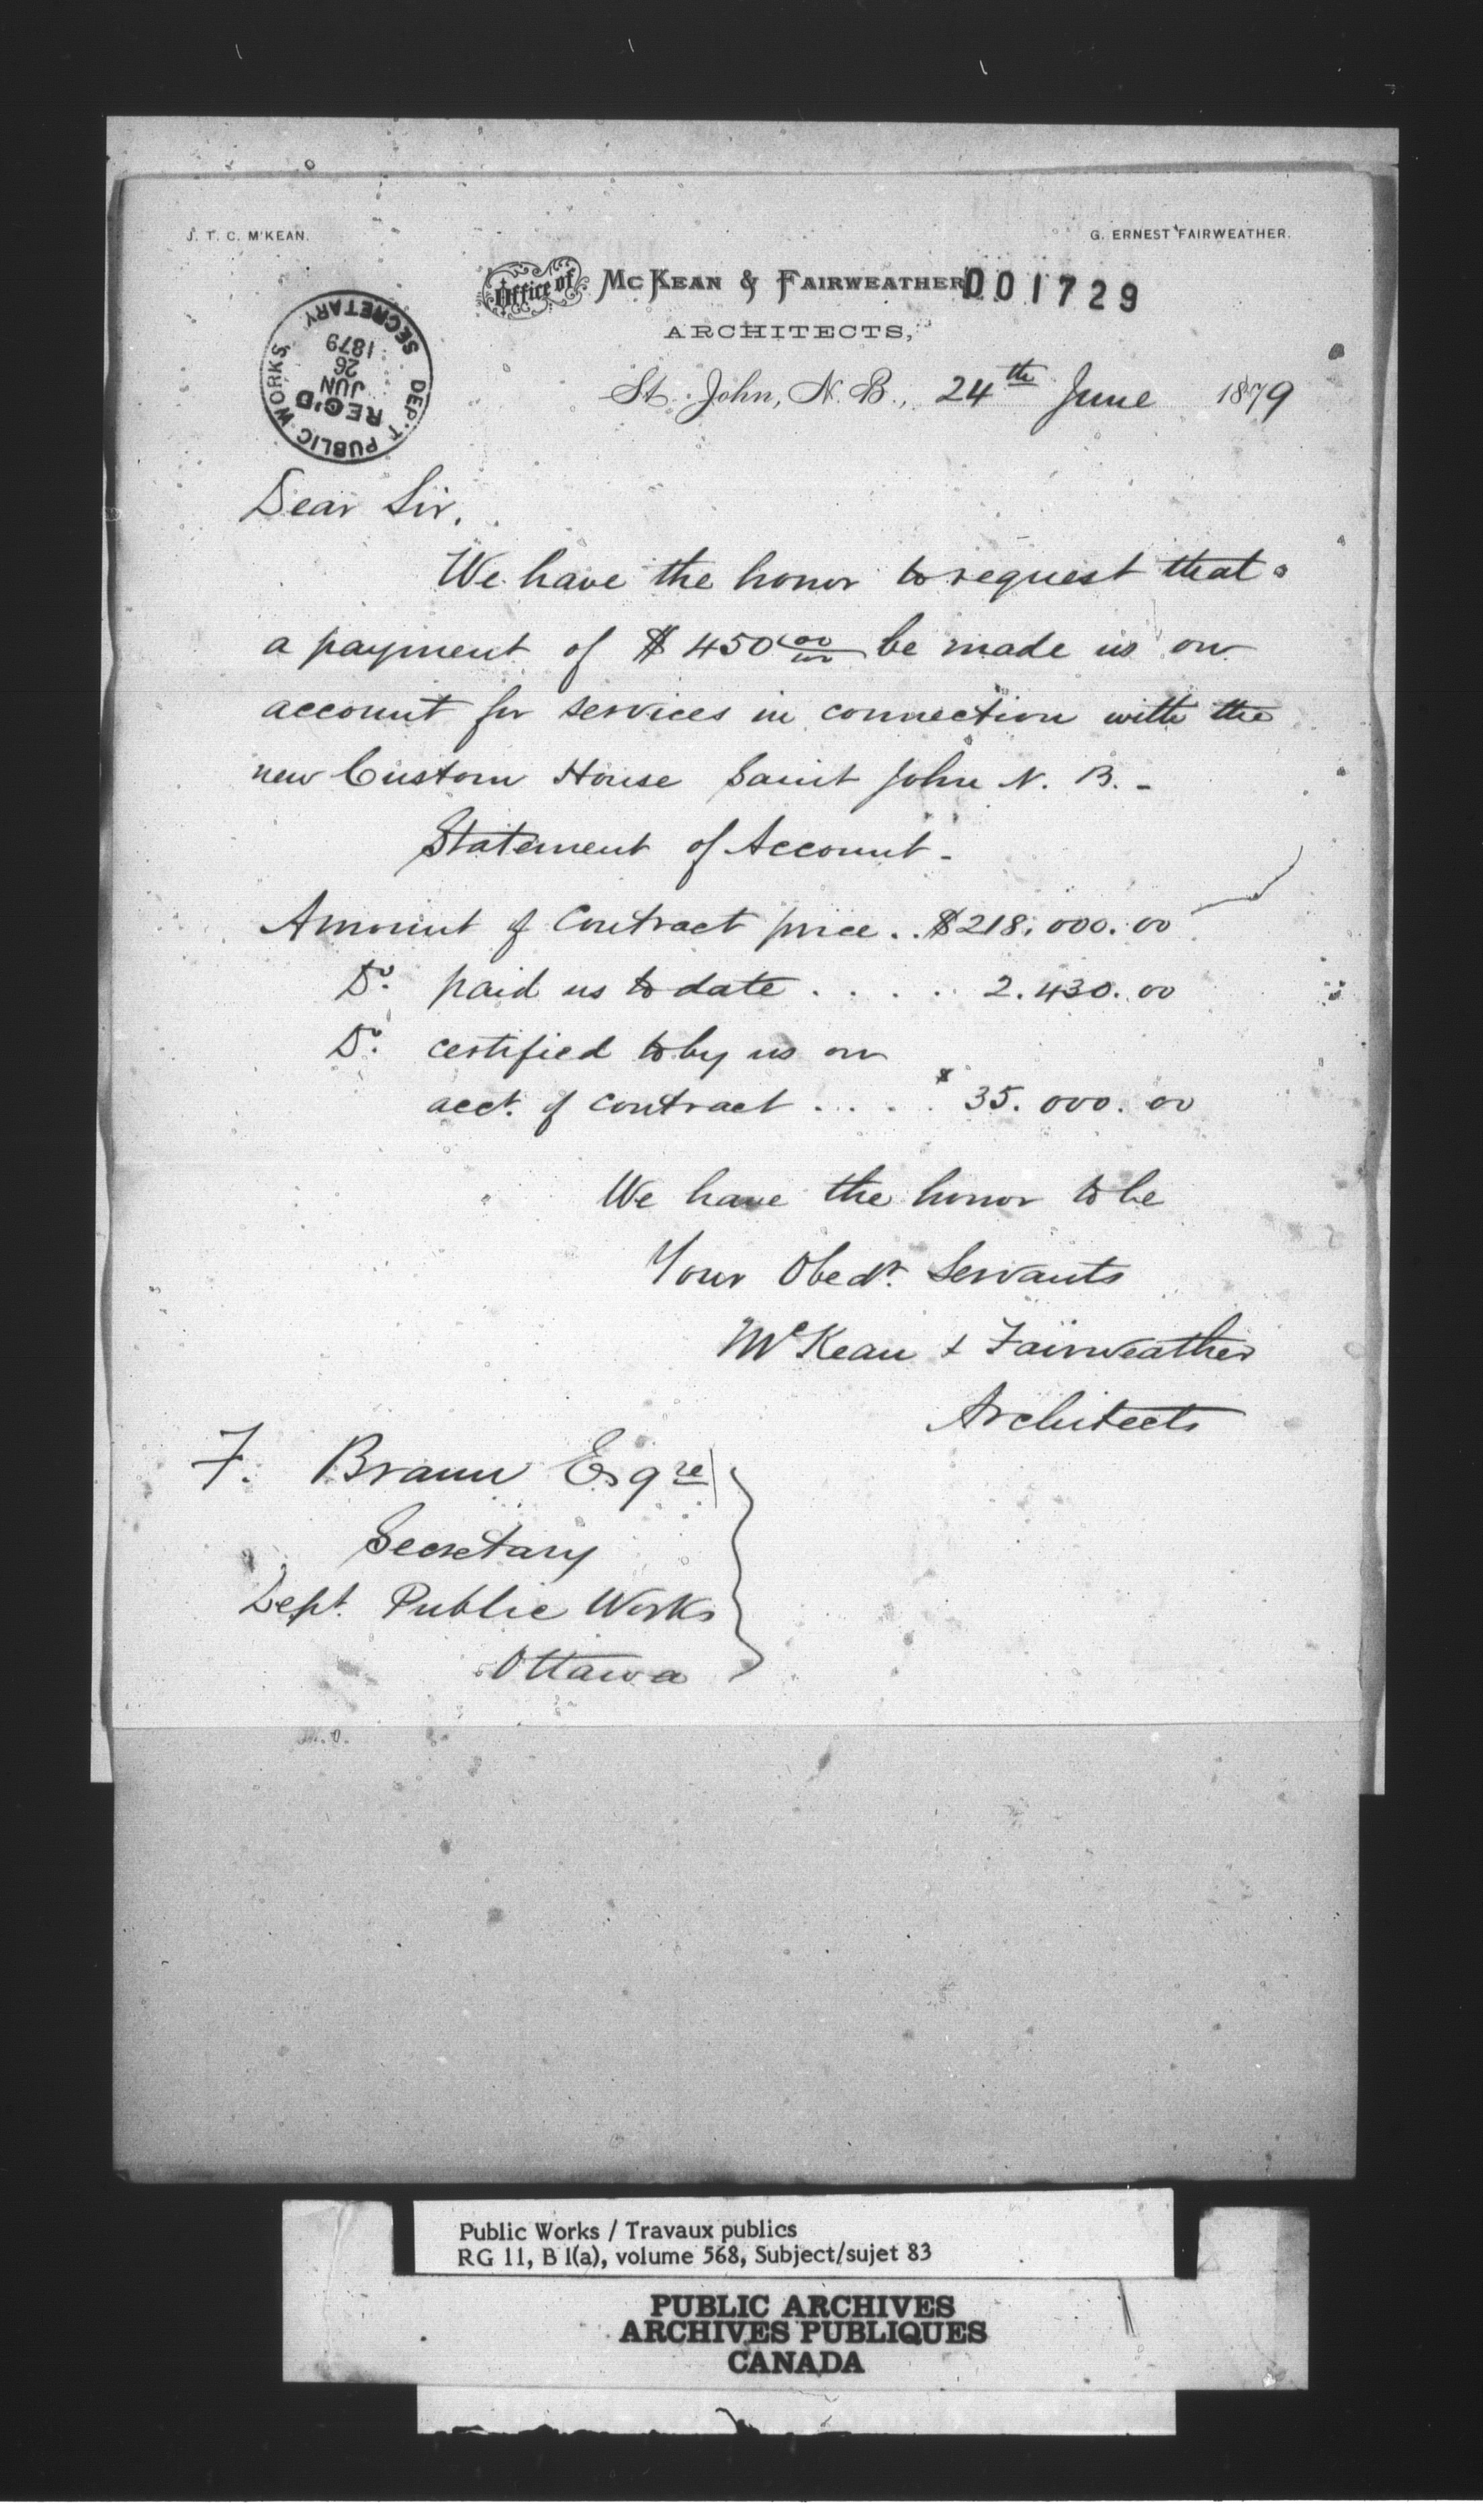 J. T. C. M'KEAN.
G. ERNEST FAIRWEATHER.
Office of McKEAN & FAIRWEATHER
001729
ARCHITECTS,
DEP'T PUBLIC WORKS
REC'D
JUN
26
1879
SECRETARY
St. John, N. B., 24th June 1879
Dear Sir,
We have the honor to request that
a payment of $450 00/00 be made us on
account for services in connection with the
new Custom House Saint John N. B. -
Statement of Account -
Amount of Contract price . . $218,000.00
Do. paid us to date . . . . . 2.430.00
Do. certified to by us on
acct. of contract . . . . . $35.000.00
We have the honor to be
Your Obedt. Servants
McKean & Fairweather
Architects
F. Braun Esqre
Secretary
Dept. Public Works
Ottawa
Public Works / Travaux publics
RG 11, B 1(a), volume 568, Subject/sujet 83
PUBLIC ARCHIVES
ARCHIVES PUBLIQUES
CANADA